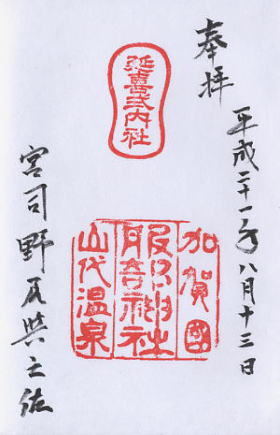 奉拝
平成二十一年八月十三日
延喜式内社
加賀國
服部神社
山代温泉
宮司野尻與之佐